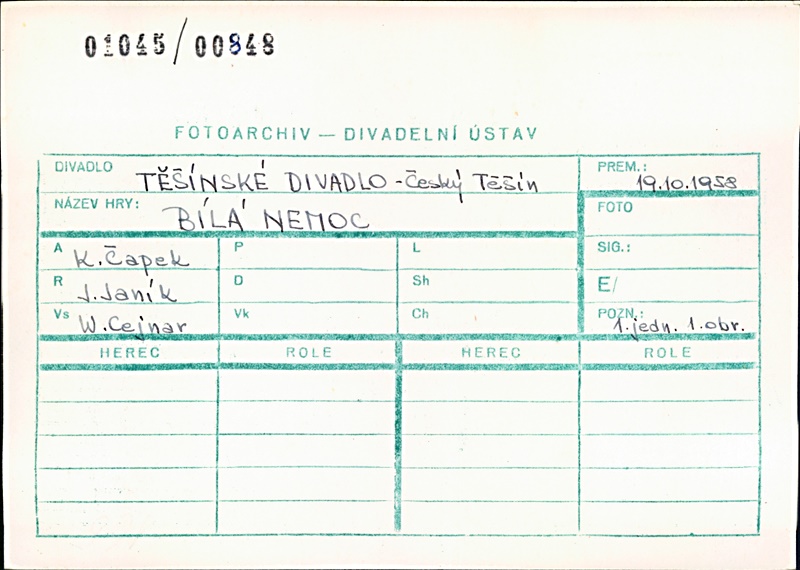 01045/00848
FOTOARCHIV — DIVADELNÍ ÚSTAV
DIVADLO TĚŠÍNSKÉ DIVADLO - Český Těšín PREM.: 19.10.1958
NÁZEV HRY: BÍLÁ NEMOC FOTO
A K. Čapek P L SIG.:
R J. Janík D Sh E/
Vs W. Cejnar Vk Ch POZN.: 1. jedn. 1. obr.
HEREC ROLE HEREC ROLE